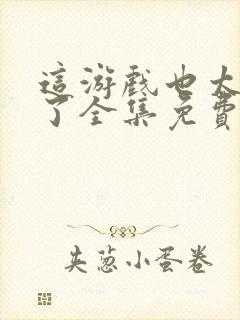 這游戲也太
了全集免費
夹葱小蛋卷